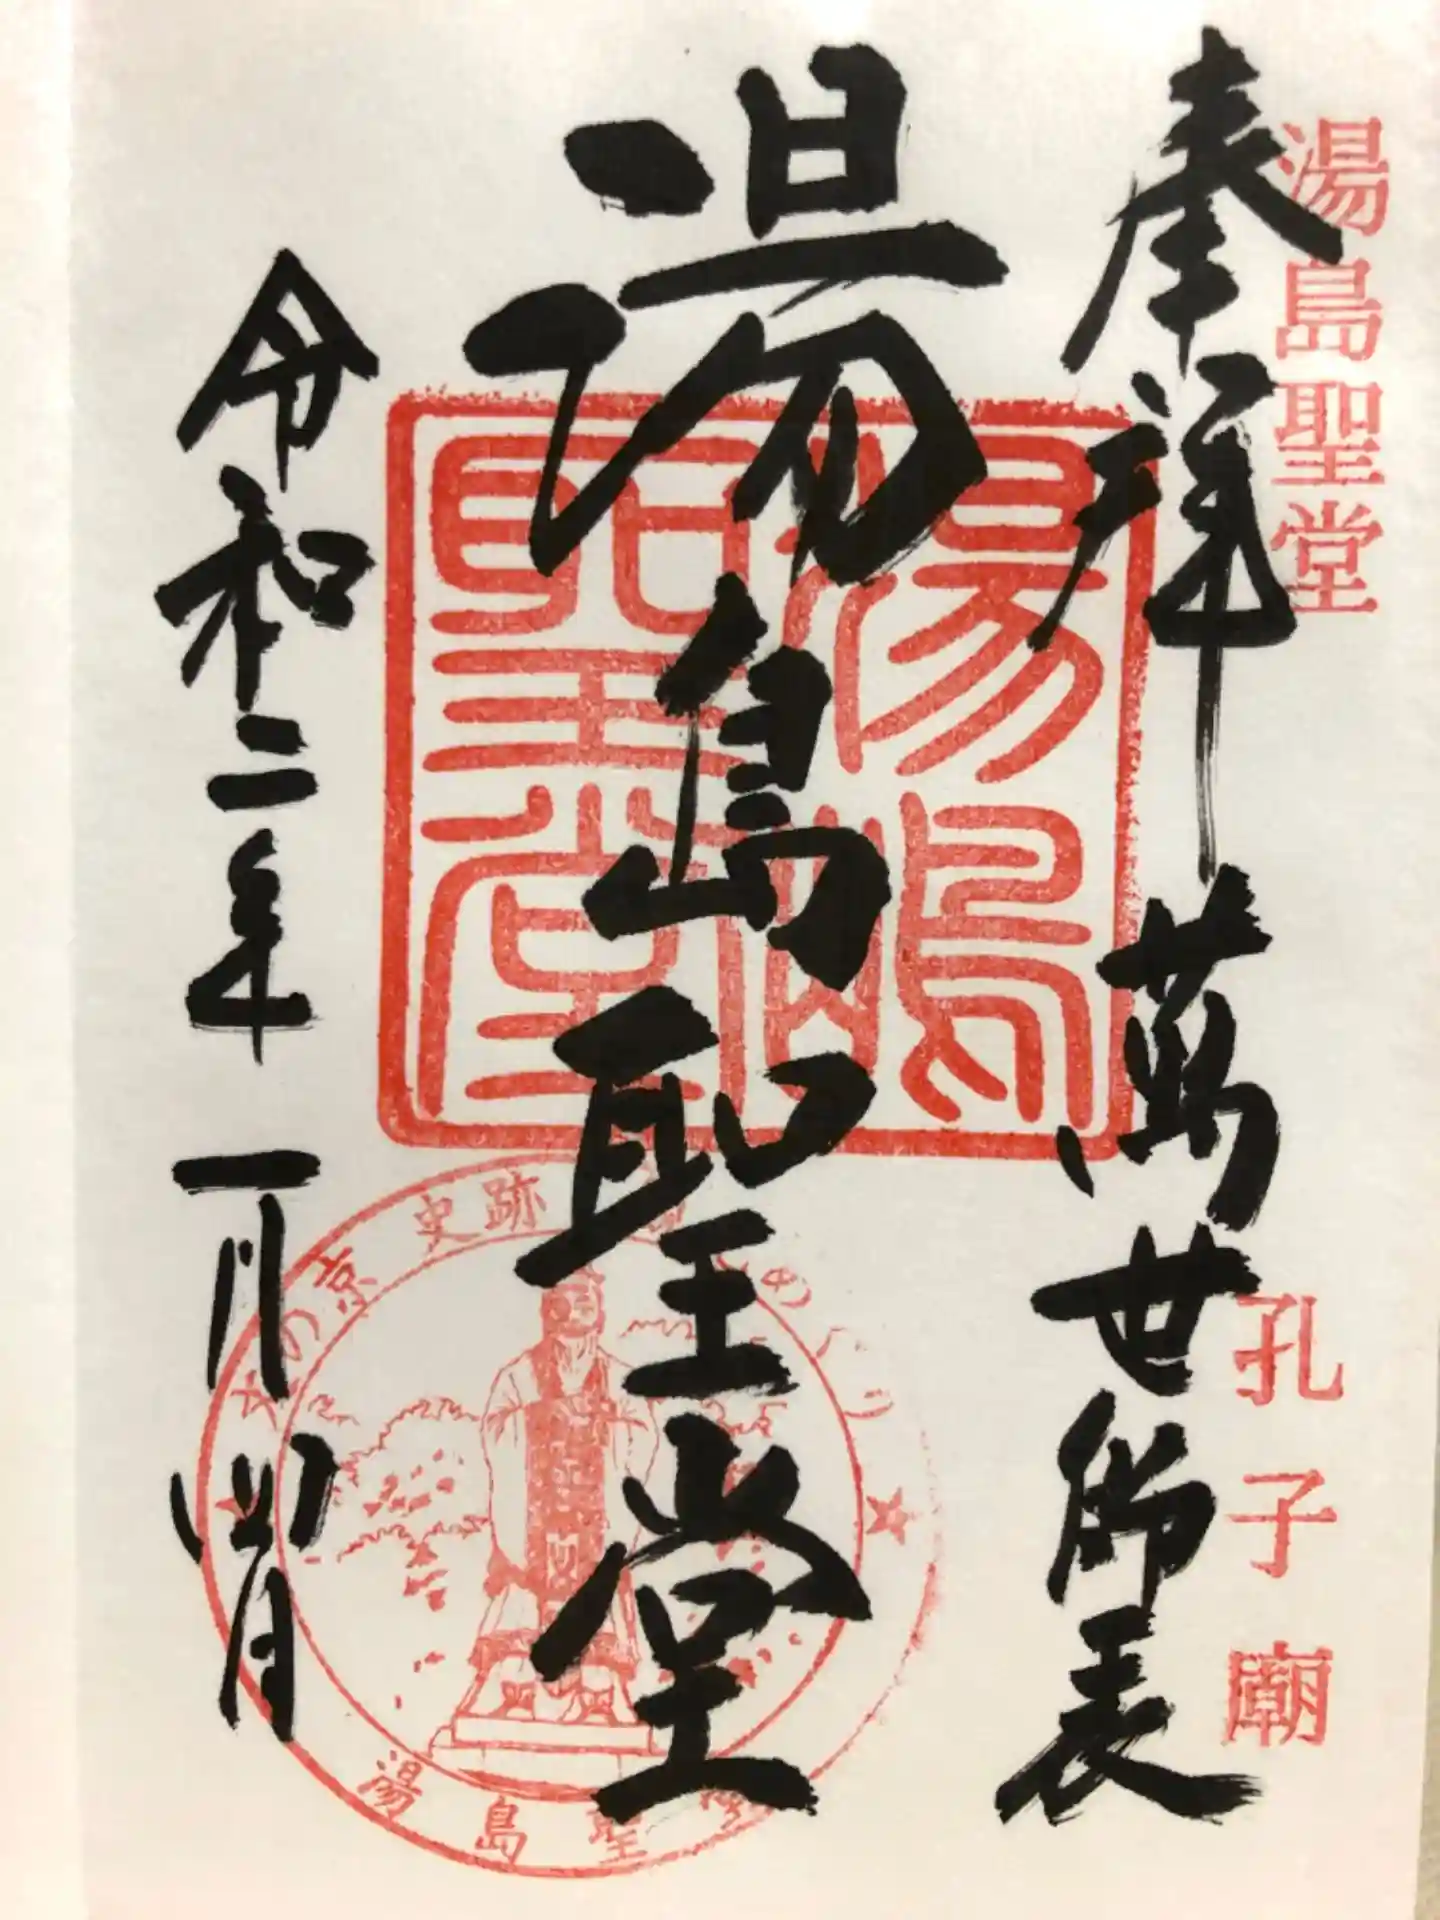 湯島聖堂
孔子廟
奉拝
萬世師表
湯島聖堂
湯嶋聖堂
令和二年
一月四日
文の京 史跡
湯島聖